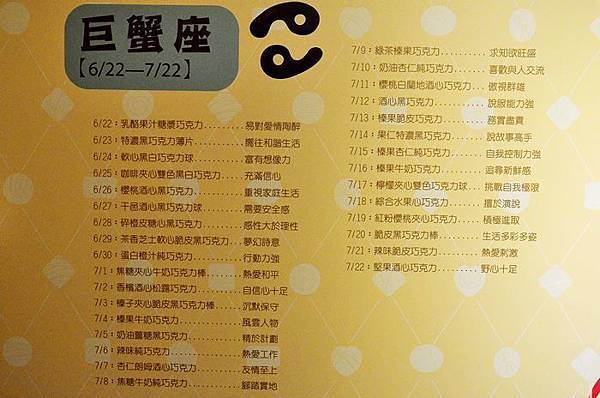 巨蟹座
【6/22—7/22】
6/22：乳酪果汁糖漿巧克力........易對愛情陶醉
6/23：特濃黑巧克力薄片..........嚮往和諧生活
6/24：軟心黑白巧克力球..........富有想像力
6/25：咖啡夾心雙色黑白巧克力....充滿信心
6/26：櫻桃酒心黑巧克力..........重視家庭生活
6/27：干邑酒心黑巧克力球........需要安全感
6/28：碎橙皮糖心黑巧克力........感性大於理性
6/29：茶香芝士軟心脆皮黑巧克力..夢幻詩意
6/30：蛋白橙汁純巧克力..........行動力強
7/1：焦糖夾心牛奶巧克力棒.......熱愛和平
7/2：香檳酒心松露巧克力.........自信心十足
7/3：榛子夾心脆皮黑巧克力棒.....沉默保守
7/4：榛果牛奶巧克力............風雲人物
7/5：奶油薑糖黑巧克力..........精於計劃
7/6：辣味純巧克力.............熱愛工作
7/7：杏仁朗姆酒心巧克力........友情至上
7/8：焦糖牛奶純巧克力..........腳踏實地
7/9：綠茶榛果巧克力..........求知欲旺盛
7/10：奶油杏仁純巧克力........喜歡與人交流
7/11：櫻桃白蘭地酒心巧克力....傲視群雄
7/12：酒心黑巧克力...........說服能力強
7/13：榛果脆皮巧克力.........務實盡責
7/14：果仁特濃黑巧克力.......說故事高手
7/15：榛果杏仁純巧克力.......自我控制力強
7/16：榛果牛奶巧克力.........追尋新鮮感
7/17：檸檬夾心雙色巧克力球...挑戰自我極限
7/18：綜合水果心巧克力.......擅於演說
7/19：紅粉櫻桃夾心巧克力.....積極進取
7/20：脆皮黑巧克力棒.........生活多彩多姿
7/21：辣味脆皮巧克力.........熱愛刺激
7/22：堅果酒心巧克力.........野心十足